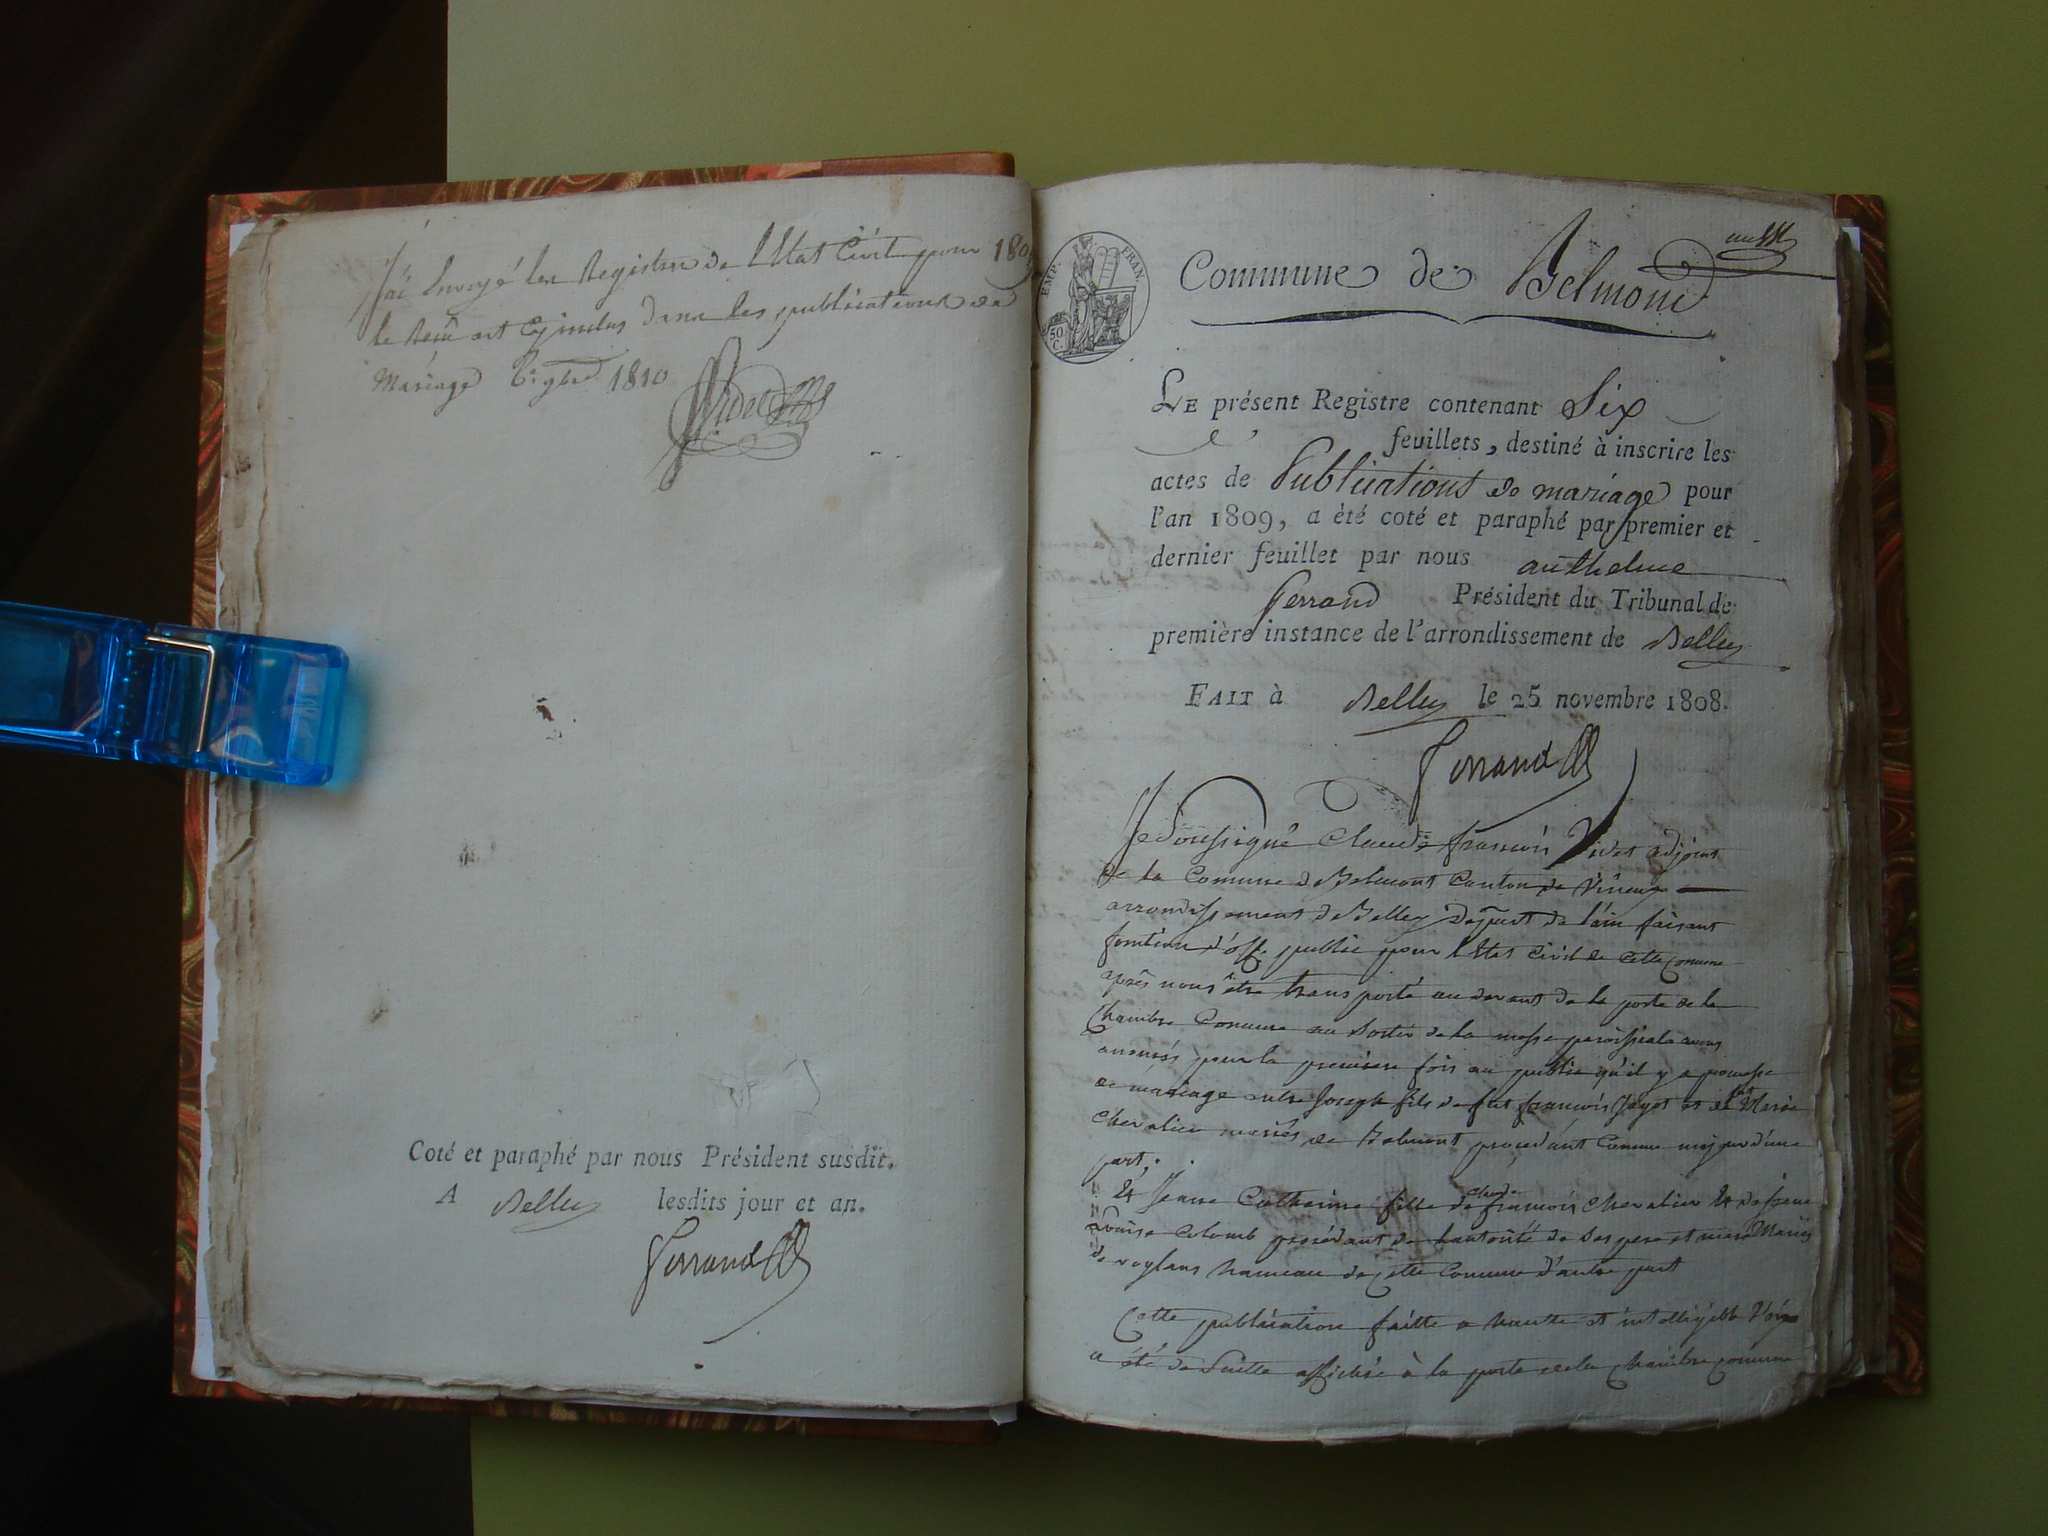 J'ai Envoyé les Registres de l'Etat Civil pour 180
le Reçu est dans les publications de
Mariage 1810
Videt
Coté et paraphé par nous Président susdit.
A Belley lesdits jour et an.
Ferrand
EMP. FRAN.
50 C.
Commune de Belmont
LE présent Registre contenant Six
feuillets, destiné à inscrire les
actes de Publications de mariage pour
l'an 1809, a été coté et paraphé par premier et
dernier feuillet par nous anthelme
ferrand Président du Tribunal de
première instance de l'arrondissement de Belley
FAIT à Belley le 25 novembre 1808.
Ferrand
Je Soussigné Claude françois Videt adjoint
de la Comune de Belmont Canton de
arrondissement de Belley Depart de l'ain faisant
fontion d'off. public pour l'Etat Civil de cette Comune
après nous être transporté au devant de la porte de la
Chambre Comune au Sortir de la messe paroissiale avons
anoncés pour la premiere fois au public qu'il y a promesse
de mariage entre Joseph fils de feu françois Jayet et de Marie
Chevalier mariés de Belmont procedant comme majeur d'une
part,
Et Jeanne Catherine fille de claude françois Chevalier Et de
Colomb procédant de l'autorité de ses pere et mere Mariés
de hameau de cette Comune d'autre part
Cette publication faitte a haute et intelligible Voix
a été de Suitte affichée à la porte de la Chambre comune